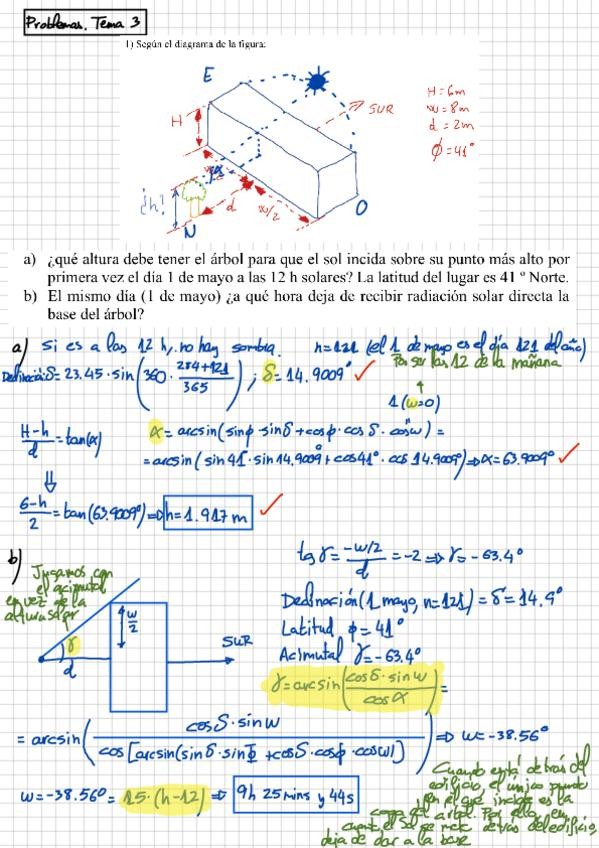 Problemas. Tema 3
1) Según el diagrama de la figura:
E
SUR
H
α
¿h?
d
w/2
N
O
H = 6m
w = 8m
d = 2m
ϕ = 41°
a) ¿qué altura debe tener el árbol para que el sol incida sobre su punto más alto por
primera vez el día 1 de mayo a las 12 h solares? La latitud del lugar es 41 º Norte.
b) El mismo día (1 de mayo) ¿a qué hora deja de recibir radiación solar directa la
base del árbol?
a) Si es a las 12 h, no hay sombra. n=121 (el 1 de mayo es el día 121 del año)
Por ser las 12 de la mañana
Declinación: δ = 23.45 · sin (360 · 284+121 / 365) ; δ = 14.9009° ✓
1 (w=0)
H-h / d = tan(α) α = arcsin (sinϕ · sinδ + cosϕ · cos δ · cosw) =
= arcsin ( sin 41 · sin 14.9009 + cos 41° · cos 14.9009°) ⇒ α = 63.9009° ✓
6-h / 2 = tan (63.9009°) ⇒ h = 1.917 m ✓
b) Jugamos con
el acimutal
en vez de la
altura solar
w/2
γ
d
SUR
tg γ = -w/2 / d = -2 ⇒ γ = -63.4°
Declinación (1 mayo, n=121) = δ = 14.9°
Latitud ϕ = 41°
Acimutal γ = -63.4°
γ = arcsin (cos δ · sin w / cos α) =
= arcsin ( cos δ · sin w / cos [arcsin (sin δ · sin Φ + cos δ · cos ϕ · cos w)] ) ⇒ w = -38.56°
w = -38.56° = 15 · (h-12) ⇒ 9h 25 mins y 44s
Cuando está detrás del
edificio, el único punto
en el que incide es la
copa del árbol. Por ello, en
cuanto el Sol se mete detrás del edificio,
deja de dar a la base